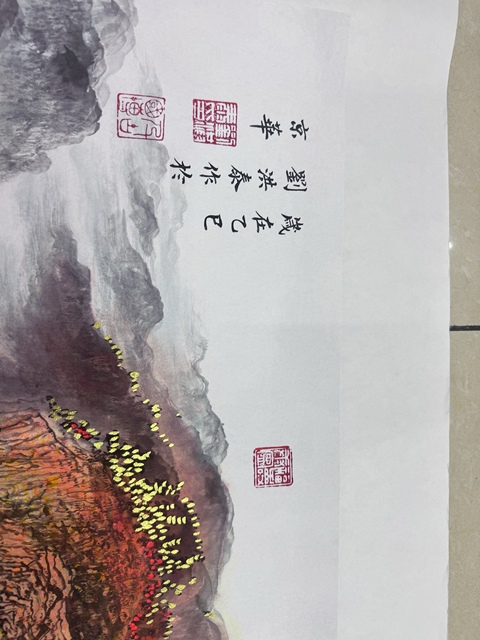 歲在乙巳
劉洪泰作於
京華